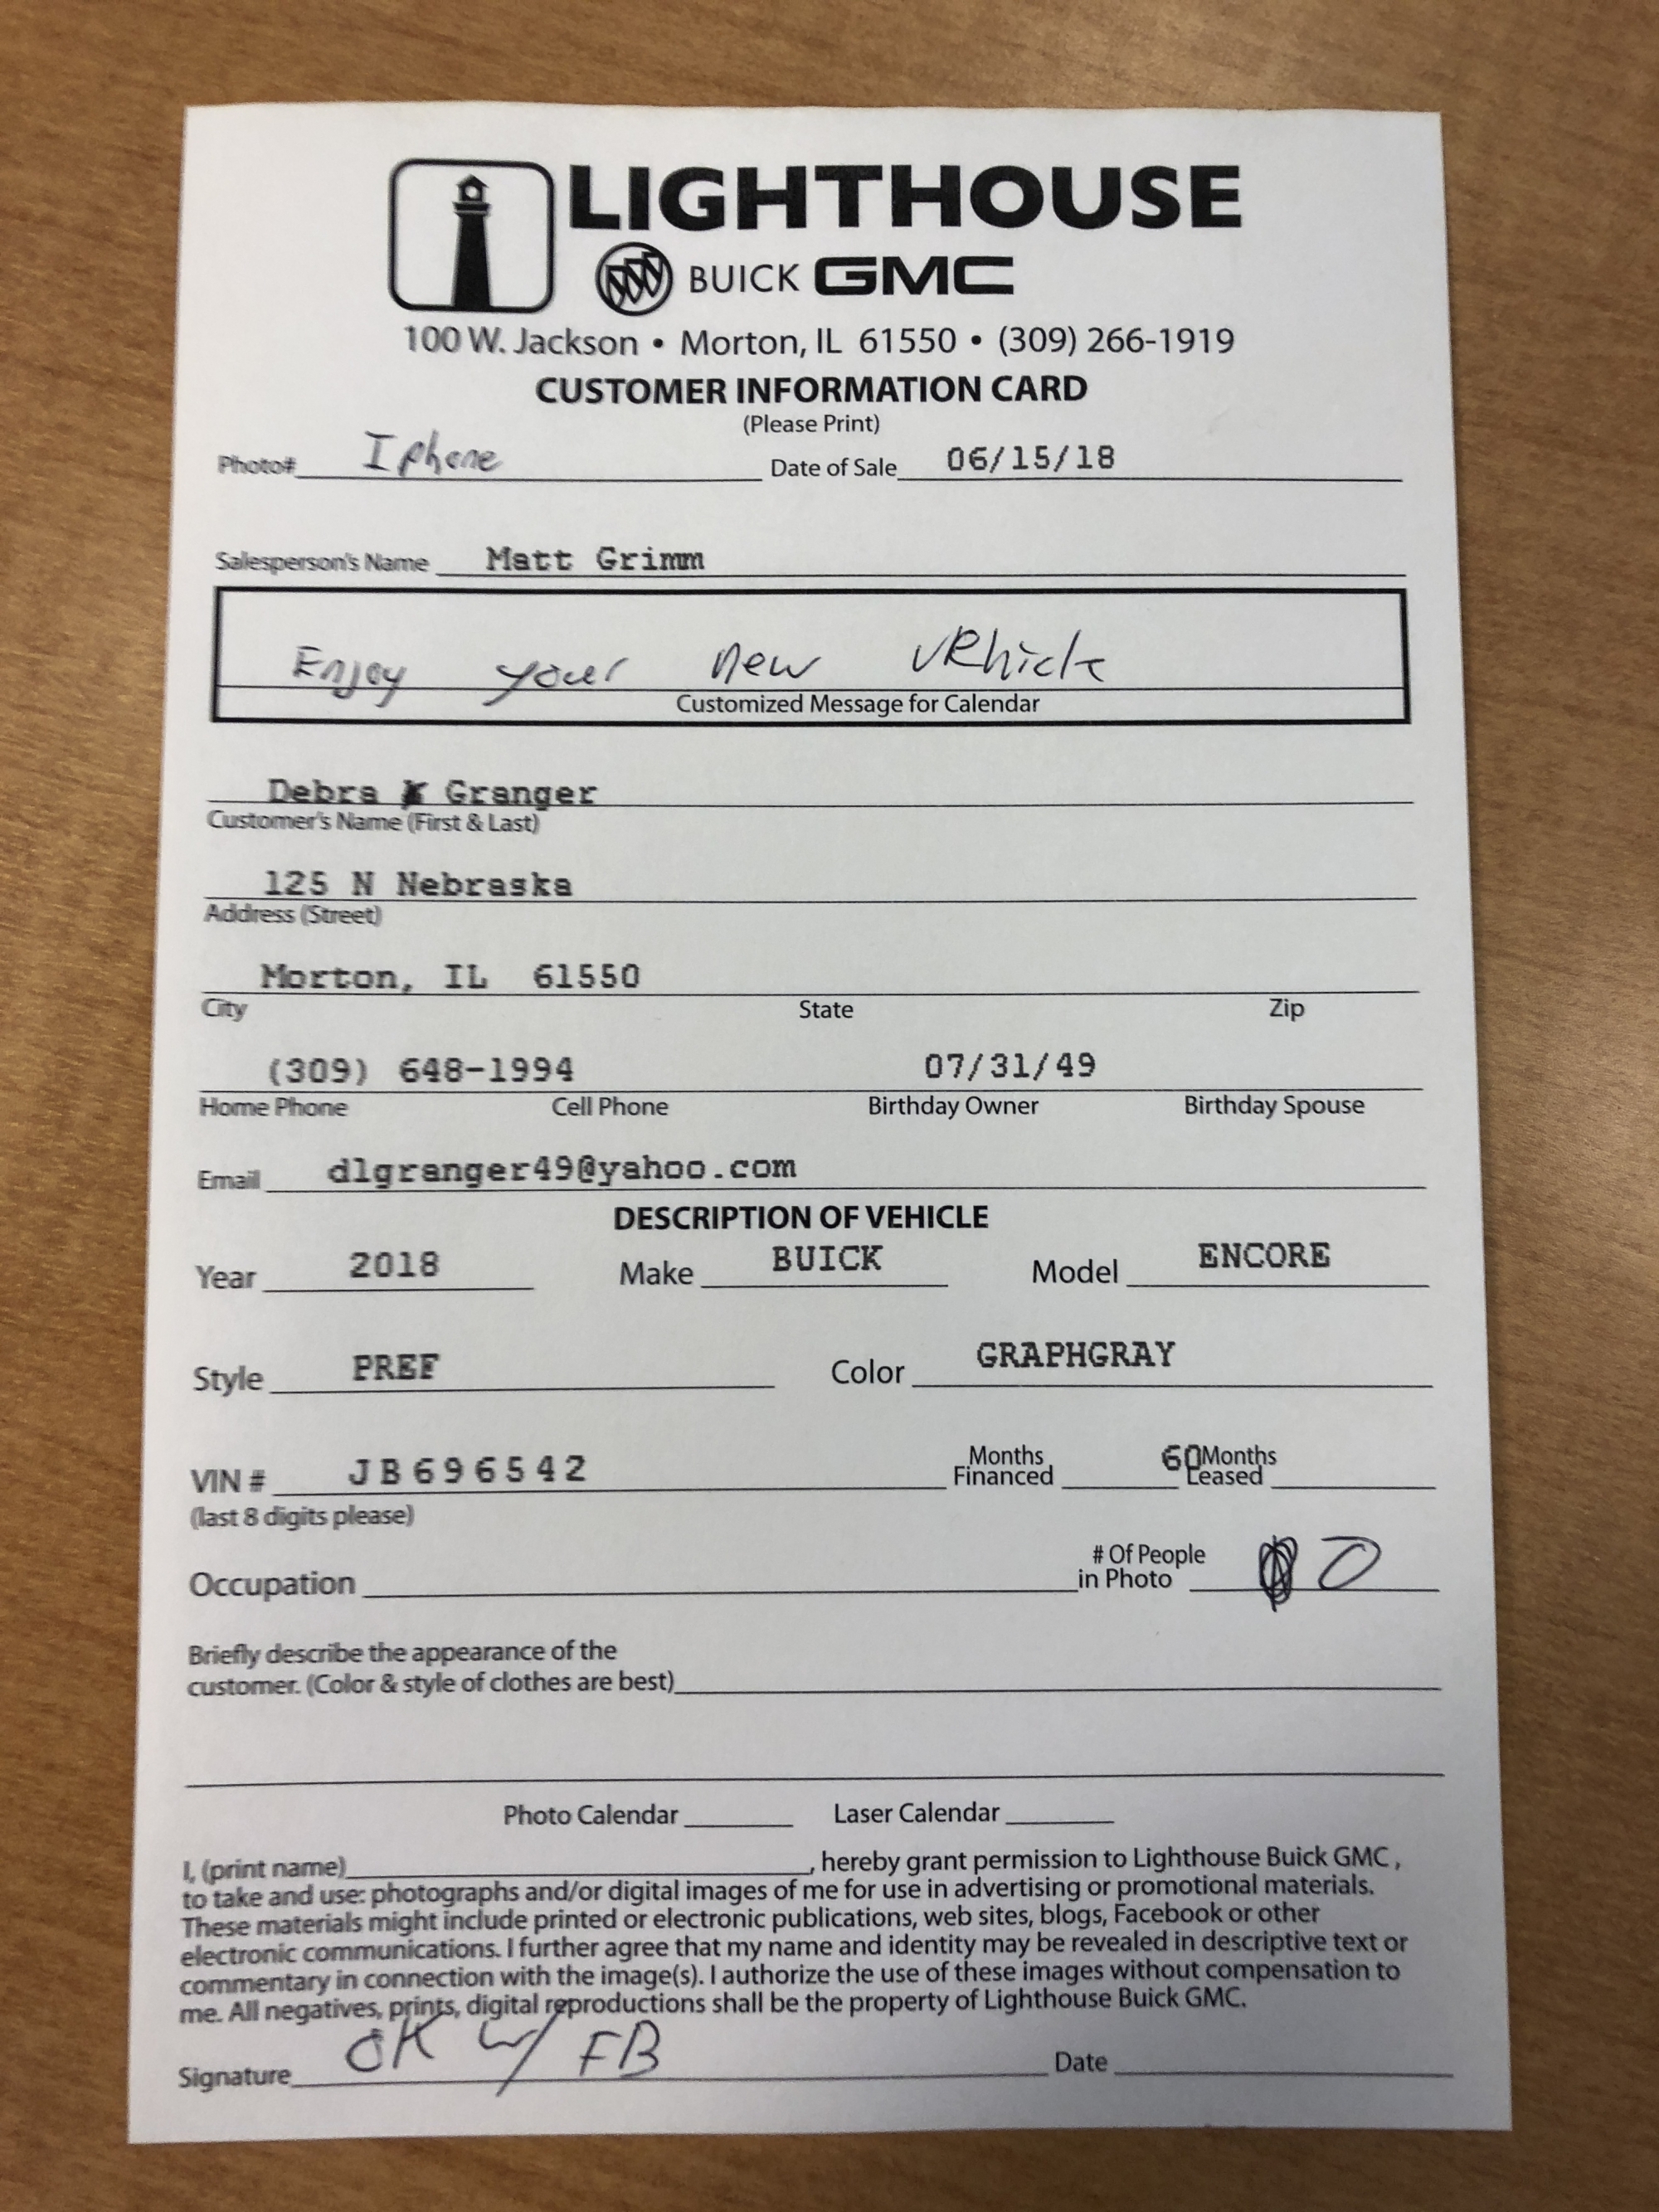 LIGHTHOUSE
BUICK GMC
100 W. Jackson • Morton, IL 61550 • (309) 266-1919
CUSTOMER INFORMATION CARD
(Please Print)
Photo# Iphone Date of Sale 06/15/18
Salesperson's Name Matt Grimm
Enjoy your new vehicle
Customized Message for Calendar
Debra Granger
Customer's Name (First & Last)
125 N Nebraska
Address (Street)
Morton, IL 61550
City State Zip
(309) 648-1994 07/31/49
Home Phone Cell Phone Birthday Owner Birthday Spouse
Email dlgranger49@yahoo.com
DESCRIPTION OF VEHICLE
Year 2018 Make BUICK Model ENCORE
Style PREF Color GRAPHGRAY
VIN # JB696542 Months Financed 60 Months Leased
(last 8 digits please)
Occupation # Of People in Photo 0
Briefly describe the appearance of the
customer. (Color & style of clothes are best)
Photo Calendar Laser Calendar
I, (print name) , hereby grant permission to Lighthouse Buick GMC ,
to take and use: photographs and/or digital images of me for use in advertising or promotional materials.
These materials might include printed or electronic publications, web sites, blogs, Facebook or other
electronic communications. I further agree that my name and identity may be revealed in descriptive text or
commentary in connection with the image(s). I authorize the use of these images without compensation to
me. All negatives, prints, digital reproductions shall be the property of Lighthouse Buick GMC.
Signature OK w/ FB Date